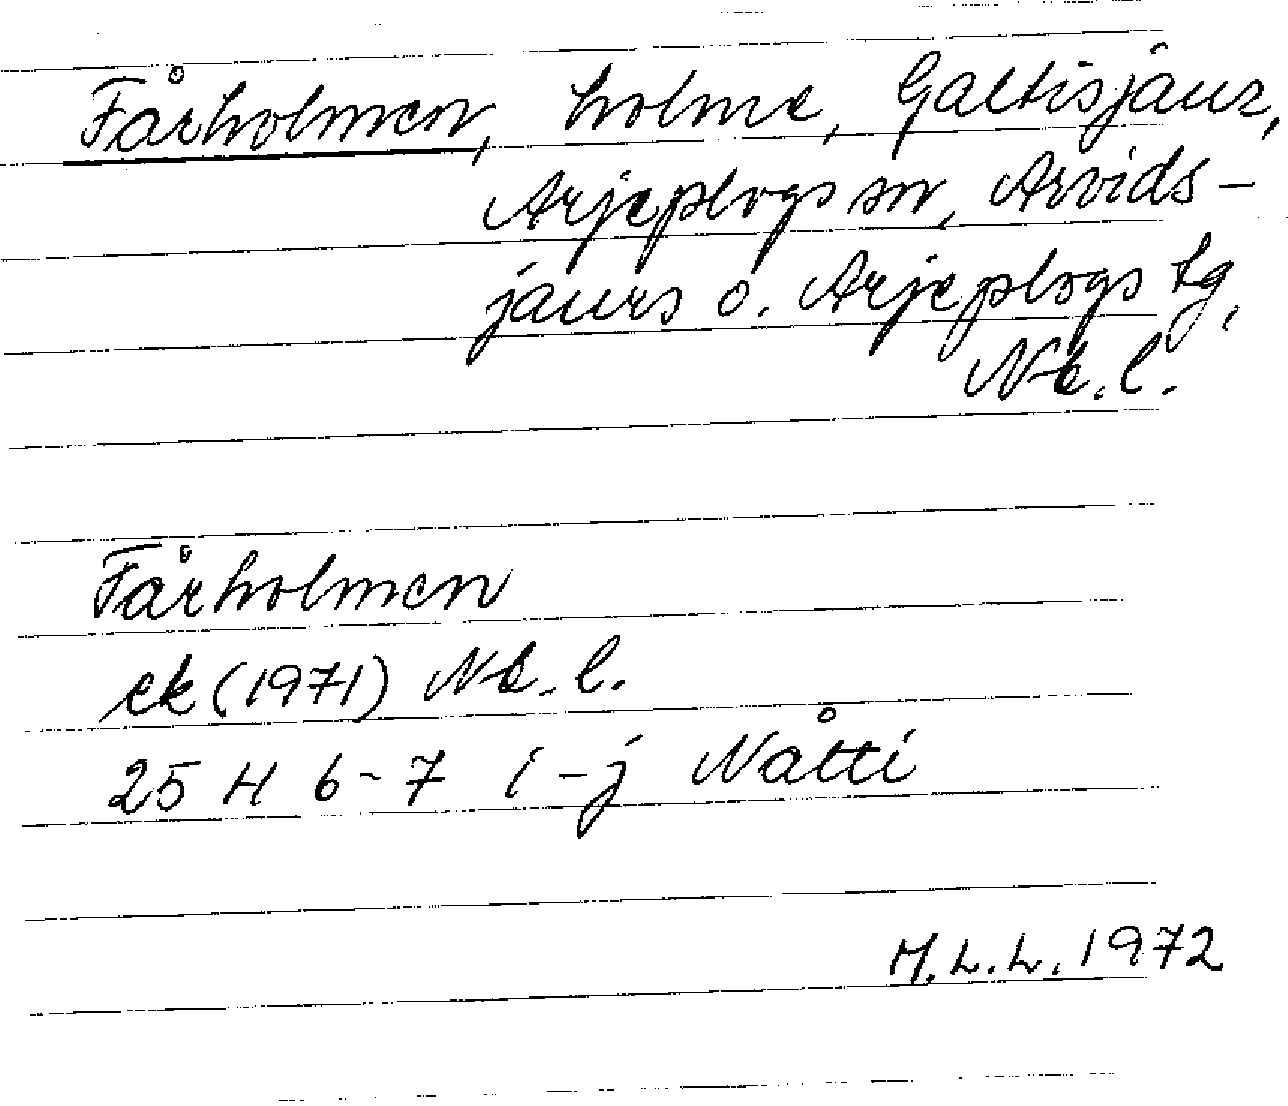 Fårholmen, holme, Galtisjaur,
Arjeplogs sn, Arvids-
jaurs o. Arjeplogs tg,
Nb. l.
Fårholmen
ek (1971) Nb. l.
25 H 6-7 i-j Nåtti
M.L.L. 1972